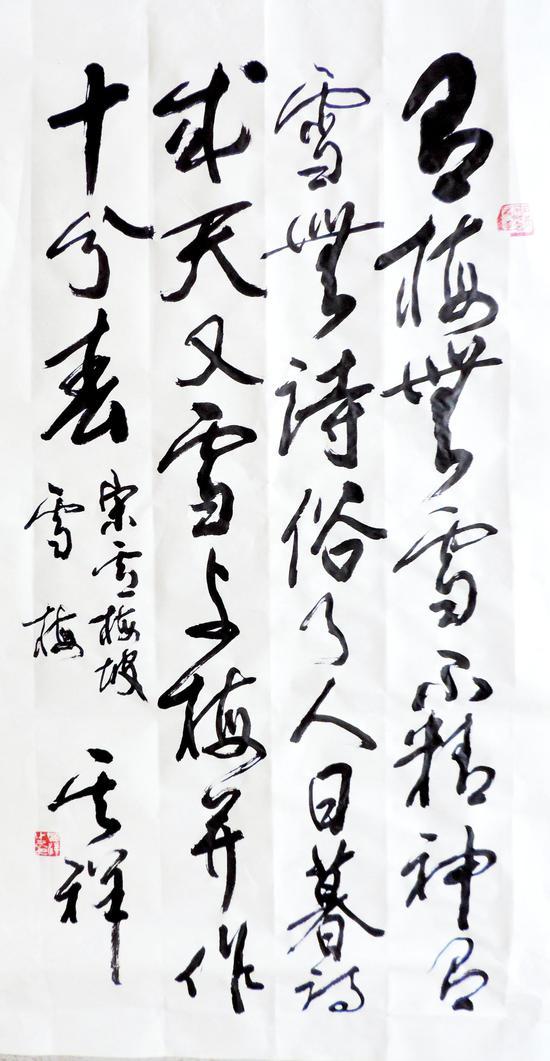 有梅無雪不精神有
雪無詩俗了人日暮詩
成天又雪与梅并作
十分春
宋盧梅坡
雪梅
祥